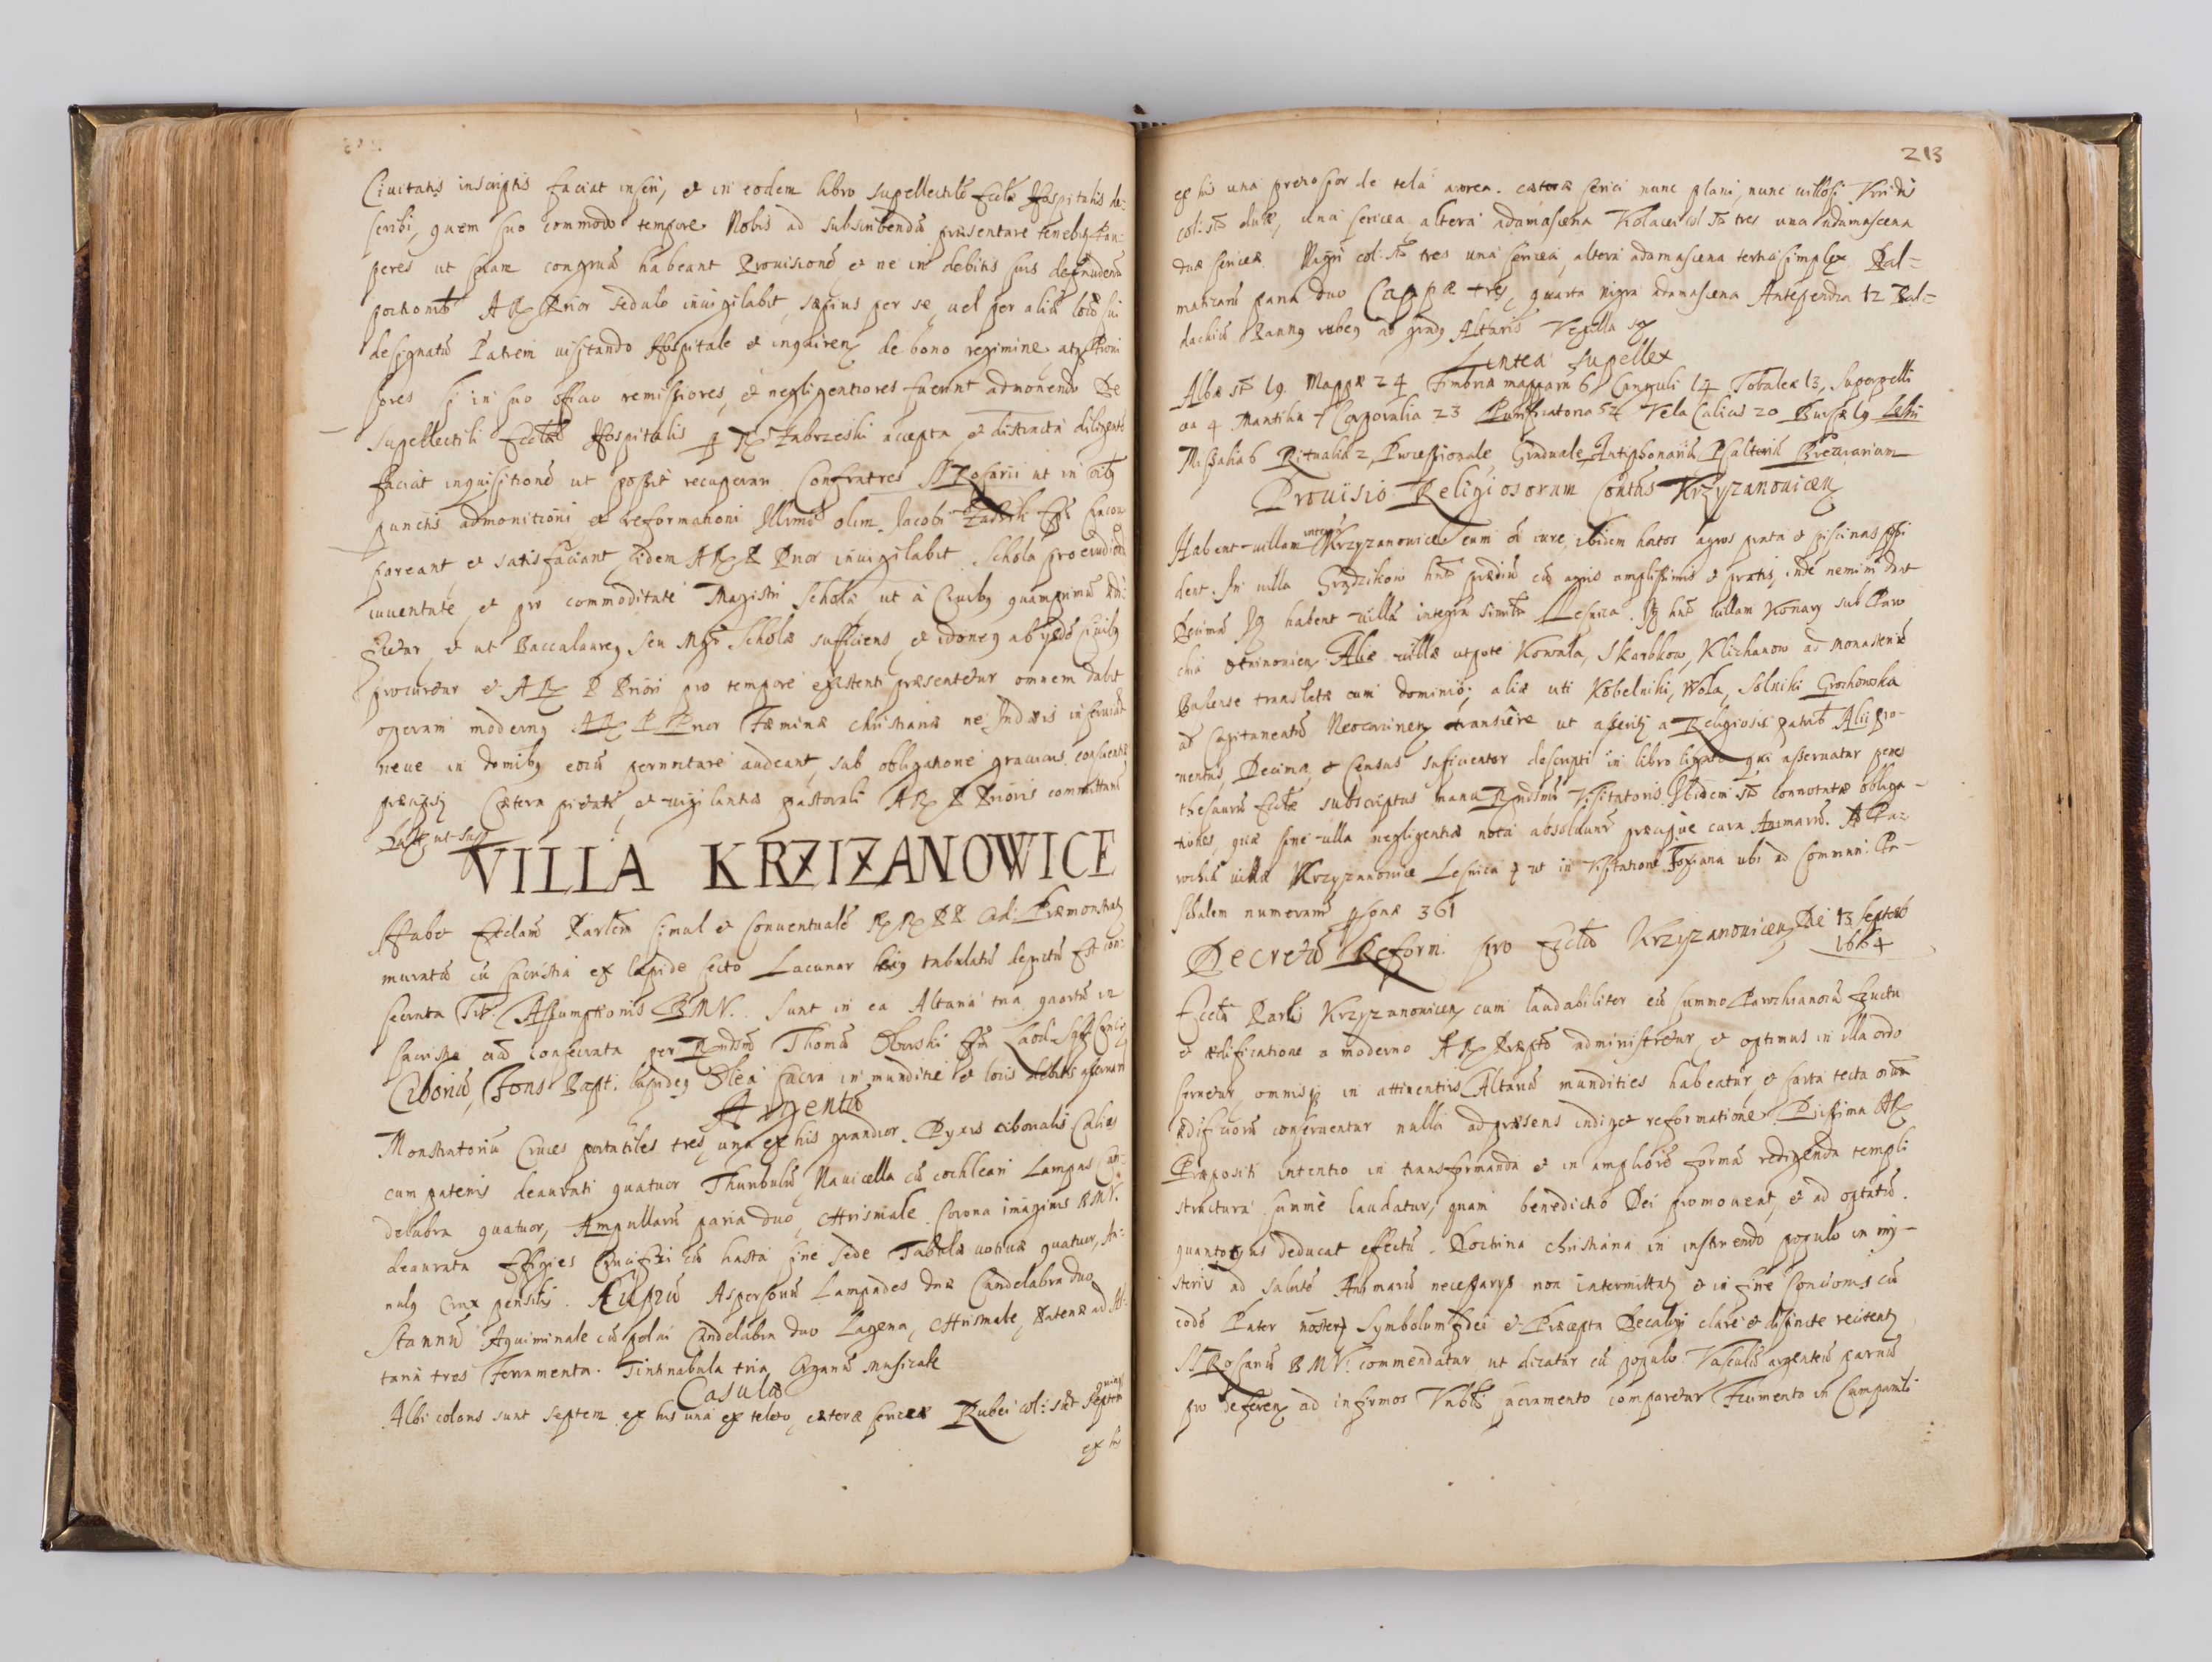 Ciuitatis inscriptis faciat inseri, et in eodem libro supellectilē Eccłæ Hospitalis de-
scribi, quem suo commodo tempore Nobis ad subscribendū præsentare tenebit. Pau-
peres ut suam congruā habeant Prouisionē et ne in debitis suis defraudent
portionib A R P Prior sedulo inuigilabit, sæpius per se, uel per aliū loco sui
designatū Patrem uisitando Hospitale et inquirens de bono regimine, atq Proui
sores si in suo officio remissiores, et negligentiores fuerint admonendo De
supellectili Eccłæ Hospitalis p R Zabrzeski accepta et distracta diligentē
faciat inquisitionē ut possit recuperari Confratres SS Rosarii ut in oib
punctis admonitioni et reformationi Illmi olim Jacobi Zadzik Epi Cracou
pareant et satisfaciant, idem A R P Prior inuigilabit. Schola pro erudienda
iuuentute, et pro commoditate Magistri Scholæ ut à Ciuibq quamprimū ædi-
ficetur, et ut Baccalaureq seu Mgr Scholæ sufficiens, et idoneq ab ysdē Ciuibq
procuretur et A R P Priori pro tempore existenti præsentetur omnem dabit
operam modernq A R P Prior Fæminæ christianæ ne Judæis inseruiāt
neue in domibq eorū pernoctare audeant, sub obligatione grauiori conscientiæ
præcipit Cætera pietati, et uigilantiæ pastorali A R P Prioris committunt
Datt ut supr
VILLA KRZIZANOWICE
Habet Ecclam Parlem simul et Conuentualē R R P P Ord: Præmonstrat
muratā cū sacristia ex lapide secto Lacunar huiq tabulatū depictū Est con-
secrata Tit. Assumptionis B M V. Sunt in ea Altaria tria quartū in
sacristia eiqd consecrata per Rndmū Thomā Oborski Epū Laod: Suff: Cracou
Ciboriū, Fons Bapt: lapideq Olea sacra in munditie et locis debitis asseruant
Argentū
Monstratoriū Cruces portatiles tres, una ex his grandior. Pyxis cibonalis Calices
cum patenis deaurati quatuor Thuribulū, Nauicella cū cochleari Lampas Can-
delabra quatuor, Ampullarū paria duo, Chrismale. Corona imaginis B M V.
deaurata Effigies Crucifixi cū hasta sine sede Tabulæ uotiuæ quatuor, An-
nulq Crux pensilis. Cuprū Aspersoriū Lampades duæ Candelabra duo
Stannū Aquiminale cū pelui Candelabra duo Lagena, Chrismale, Patenæ ad Al-
taria tres Ferramenta. Tintinabula tria Organū Musicale
Casulæ
Albi coloris sunt septem ex his una ex teletto, cæteræ sericeæ Rubei col: sūt septem
ex his
213
ex his una pretiosior de tela aurea. cæteræ serici nunc plani, nunc uillosi Viridis
col: st duæ, una sericea altera adamascena Violacei col st tres una adamascena
duæ sericeæ Nigri col: st tres una sericea, altera adamascena tertia simplex Dal-
maticarū paria duo Cappæ tres, quarta nigra adamascena Antependia 12 Bal-
dachinū Pannq rubeq ad gradq Altaris Vexilla sex
Lintea supellex
Albæ st 19 Mappæ 24 Fimbriæ mapparū 6 Cinguli 14 Tobaleæ 13, Superpelli
cea 4 Mantilia 7 Corporalia 23 Purificatoria 52 Vela Calicis 20 Bursæ 19 Libri
Missalia 6 Ritualia 2, Processionale Graduale, Antiphonariū Psalteriū Breuiarium
Prouisio Religiosorum Contus Krzyzanouicen
Habent uillam integrā Krzyzanouice cum oi iure, ibidem hortos agros prata et piscinas possi
dent. In uilla Gradzikow hnt prædiū cū agris amplissimis et pratis, inde nemini dant
Decimā Itq habent uillā integrā similr Lesnica. Itq hnt uillam Konary sub Paro
chia Mninouien Aliæ uillæ utpote Kowala, Skarbkow, Klizhanow ad Monasteriū
Buskense translatæ cum dominio; aliæ uti Kobelniki, Wola, Solniki Grochowska
ad Capitaneatū Neocorcinen transiere ut asserit a Religiosis patrib Alii pro-
uentus, Decima, et Census suficienter descripti in libro ligato qui asseruatur penes
thesaurū Eccłæ subscriptus manu Rndmi Visitatoris. Ibidem st connotatæ obliga-
tiones, quæ sine ulla negligentiæ nota absoluunt præcipue cura Animarū. Ad Pa-
rochiā uillæ Krzyzanouice Lesnica p ut in Visitatione Foxiana ubi ad Commun: Pa-
schalem numerant psonæ 361
Decretū Reform: pro Eccła Krzyzanouicen Die 13 Septēb
1664
Eccła Parlis Krzyzanouicen cum laudabiliter cū summo Parochianorū fructu
et ædificatione a moderno A R Præpto administretur, et optimus in illa ordo
seruetur, omnisq in attinentiis Altariū mundities habeatur, et sarta tecta oia
ædificiorū conseruentur nulla ad præsens indiget reformatione Piissima A R
Præpositi intentio in transformanda et in ampliorē formā redigenda templi
structura summè laudatur, quam benedictio Dei promoueat, et ad optatū
quantocyus deducat effectū. Doctrina christiana in instruendo populo in my-
steriis ad salutē Animarū necessarys non intermittat, et in fine Concionis cū
eodē Pater noster Symbolum fidei et Præcepta Decalogi clarè et distincte recitent
SS Rosariū B M V. commendatur ut dicatur cū populo. Vasculū argenteū paruū
pro deferen ad infirmos Vnbli sacramento comparetur Frumento in Campanili